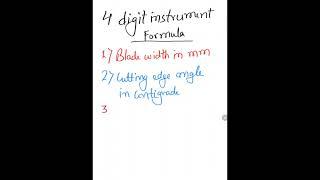 4 digit instrument
Formula
1) Blade width in mm
2) Cutting edge angle
in centigrade
3